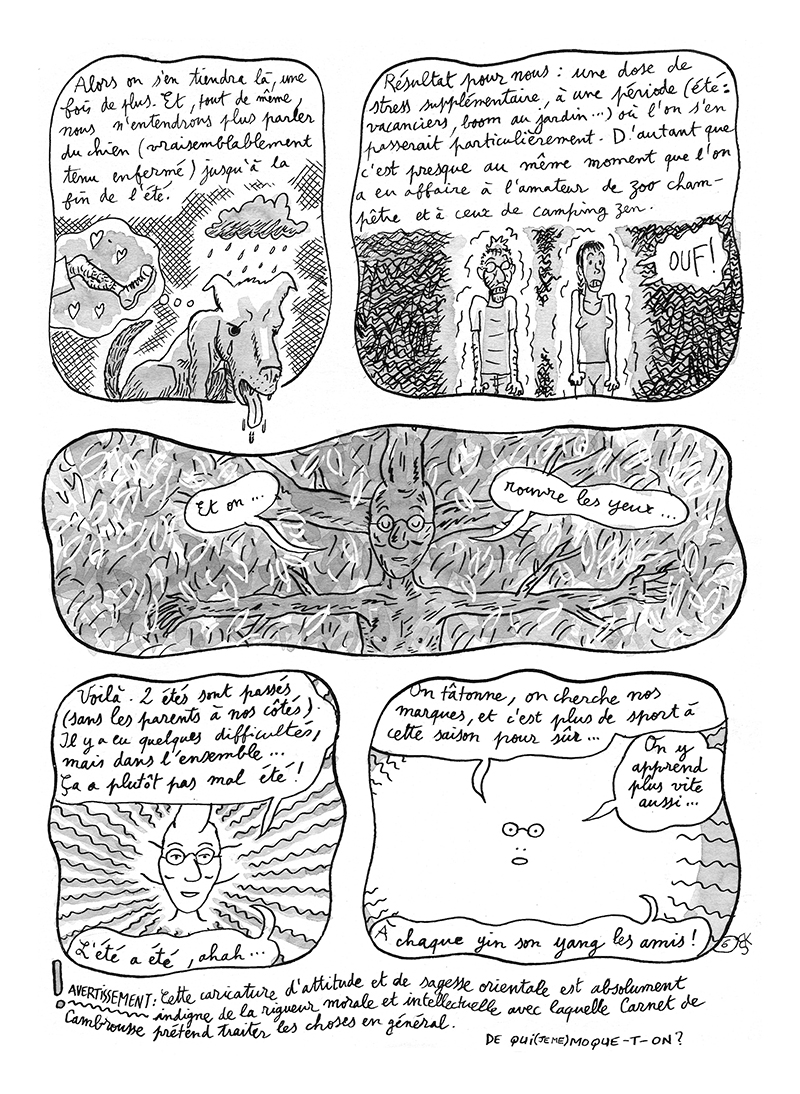 Alors on s'en tiendra là, une
fois de plus. Et, tout de même,
nous n'entendrons plus parler
du chien (vraisemblablement
tenu enfermé) jusqu'à la
fin de l'été.
Résultat pour nous : une dose de
stress supplémentaire, à une période (été :
vacanciers, boom au jardin...) où l'on s'en
passerait particulièrement. D'autant que
c'est presque au même moment que l'on
a eu affaire à l'amateur de zoo cham-
pêtre et à ceux de camping zen.
OUF!
Et on ...
rouvre les yeux ...
Voilà. 2 étés sont passés
(sans les parents à nos côtés).
Il y a eu quelques difficultés,
mais dans l'ensemble ...
Ça a plutôt pas mal été !
L'été a été, ahah ...
On tâtonne, on cherche nos
marques, et c'est plus de sport à
cette saison pour sûr ...
On y
apprend
plus vite
aussi ...
À chaque yin son yang les amis !
6
! AVERTISSEMENT : Cette caricature d'attitude et de sagesse orientale est absolument
indigne de la rigueur morale et intellectuelle avec laquelle Carnet de
Cambrousse prétend traiter les choses en général.
DE QUI (JE ME) MOQUE-T-ON ?